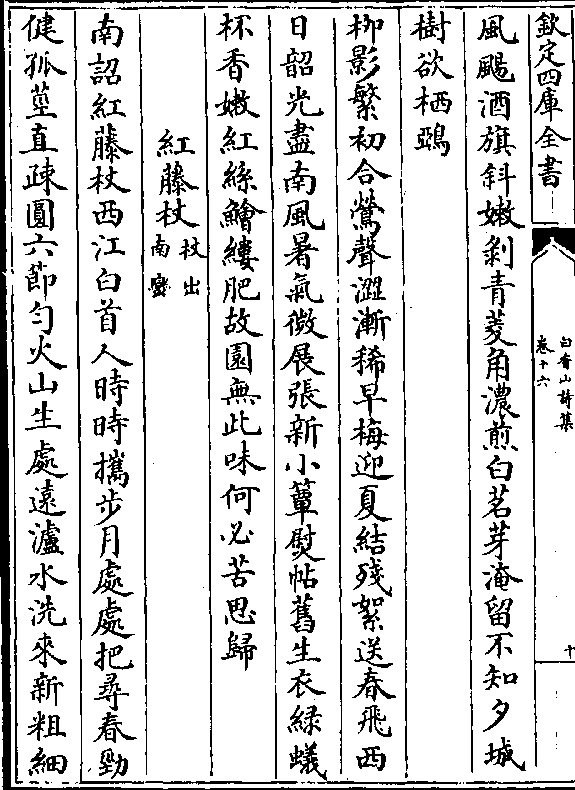 欽定四庫全書
白香山詩集
卷十六
十
風颺酒旗斜嫩剝青菱角濃煎白茗芽淹留不知夕城
樹欲栖鵶
栁影繁初合鶯聲澀漸稀早梅迎夏結殘絮送春飛西
日韶光盡南風暑氣微展張新小簟熨帖舊生衣緑蟻
杯香嫩紅絲鱠縷肥故園無此味何必苦思歸
紅藤杖杖出南蠻
南詔紅藤杖西江白首人時時攜步月處處把尋春勁
健孤莖直疎圓六節勻火山生處遠瀘水洗來新粗細